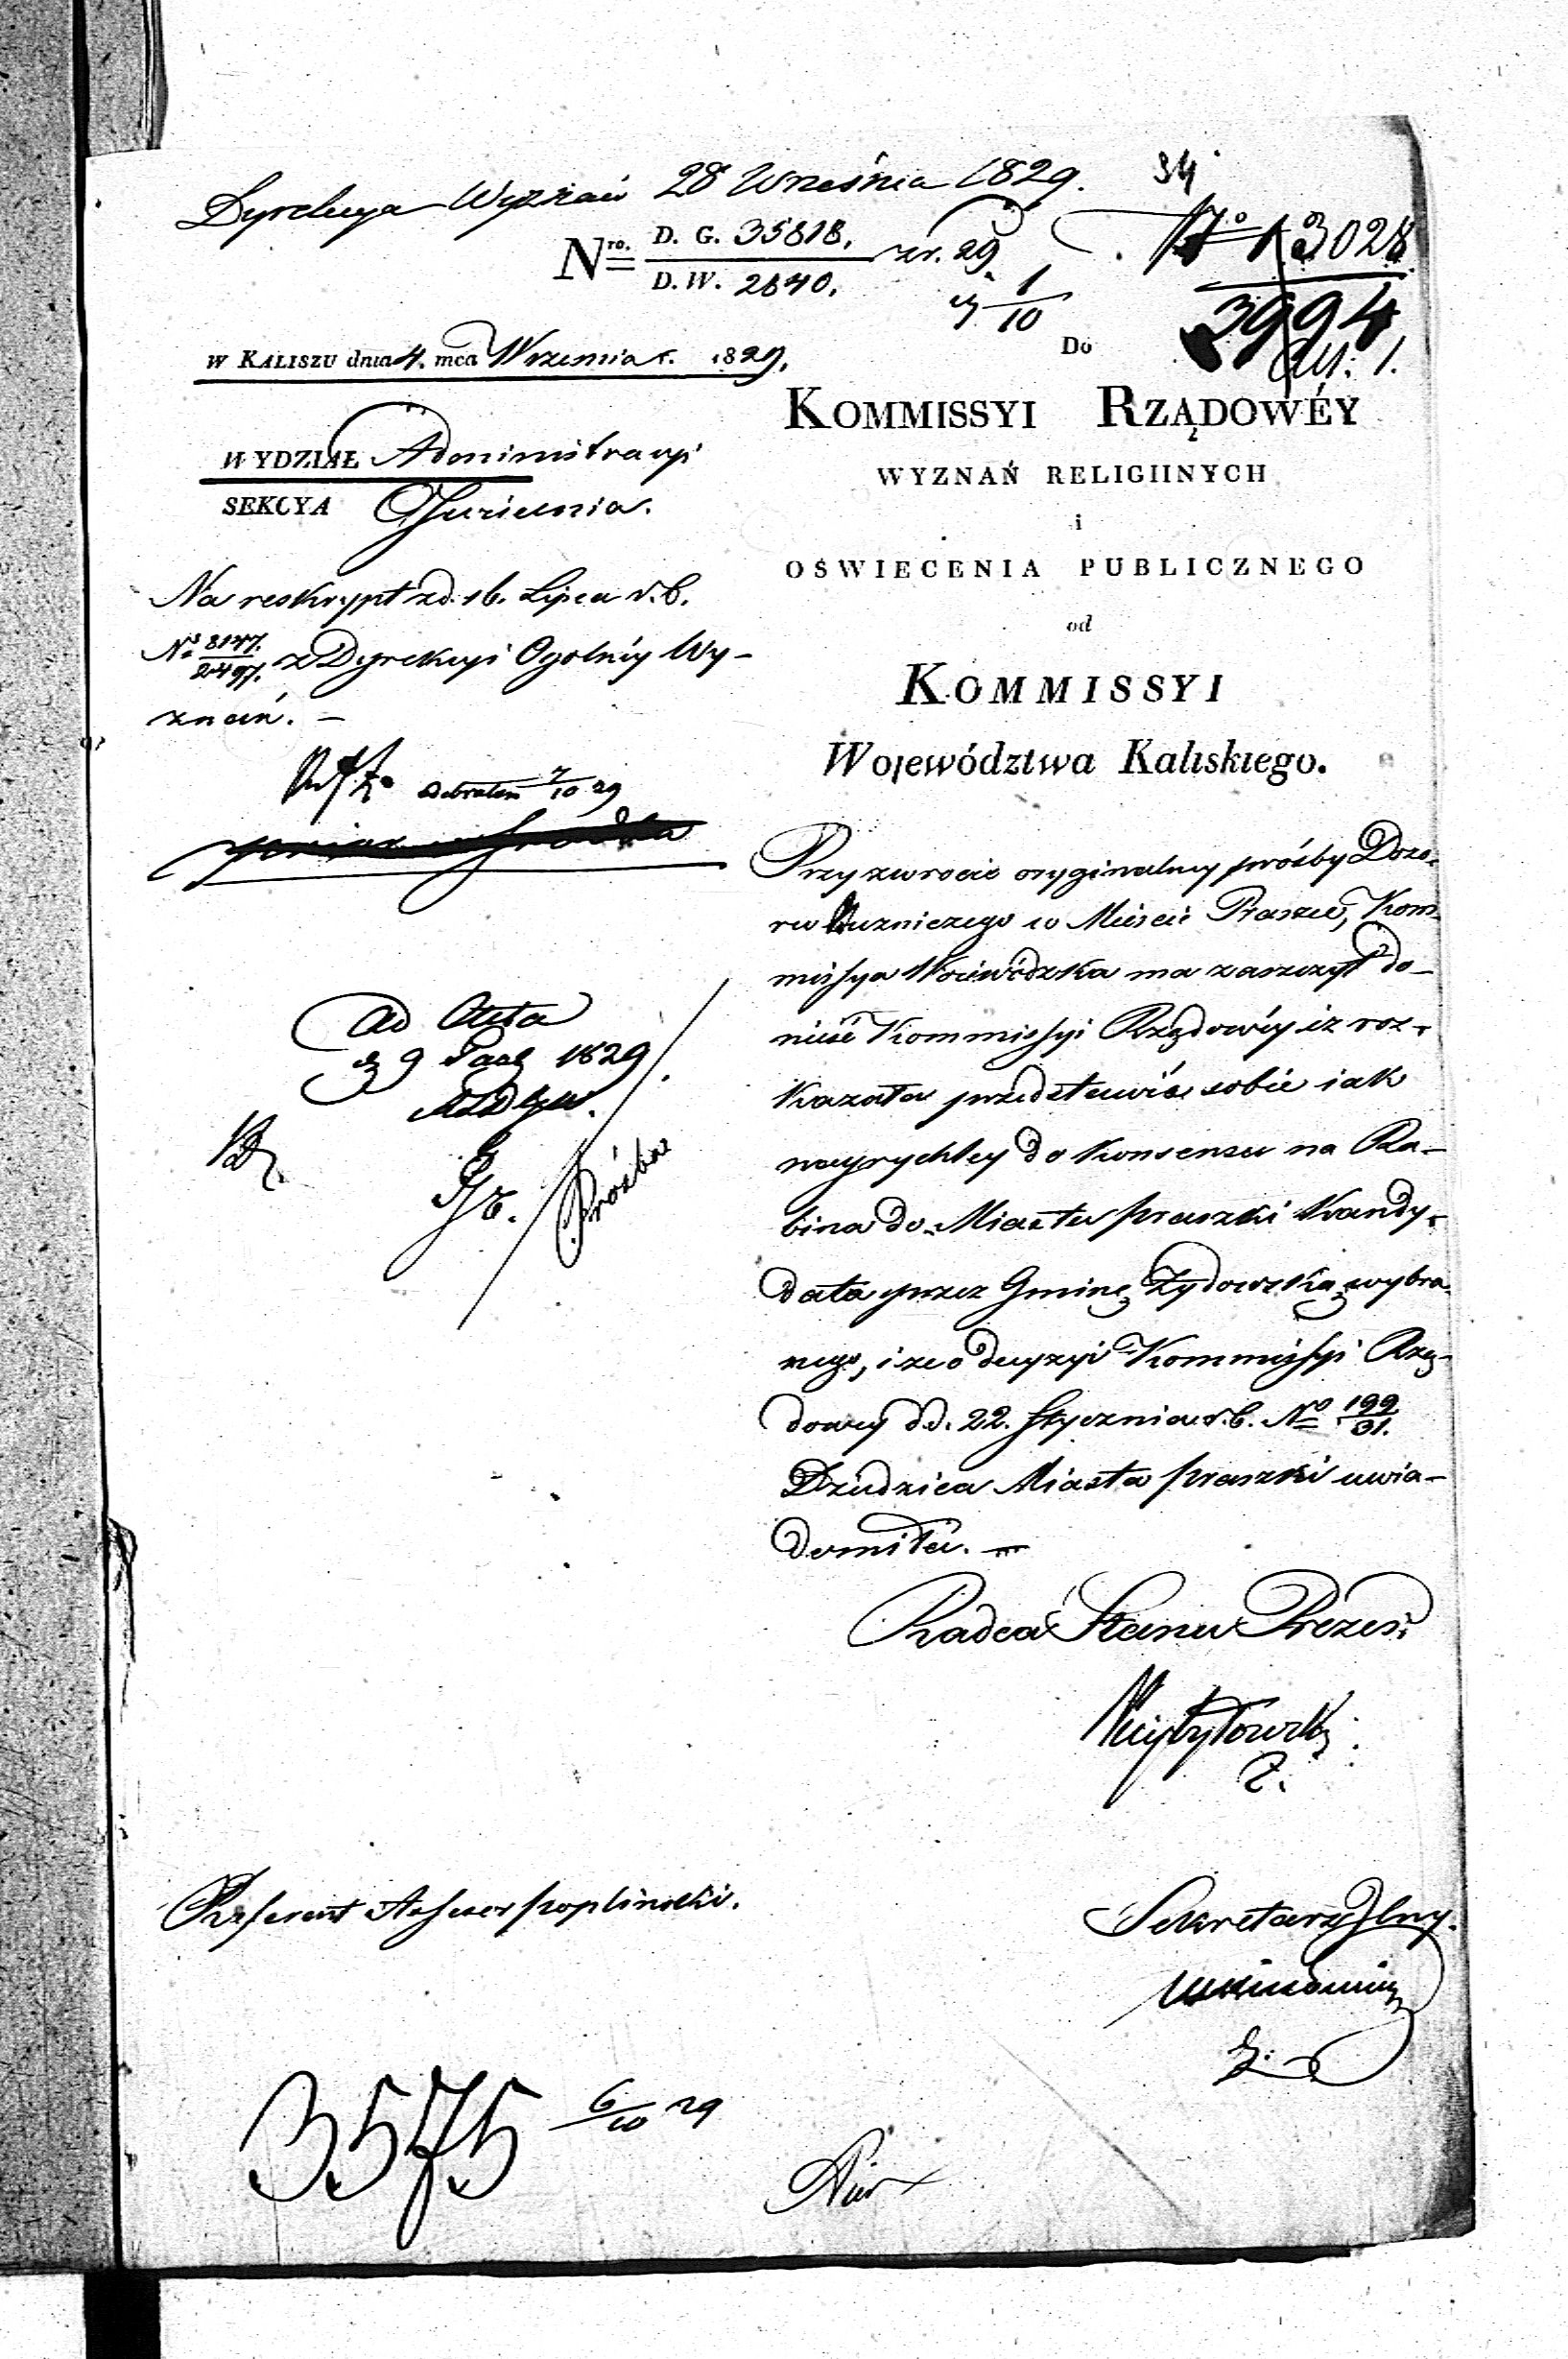 Dyrekcya Wyznań 28 Września 1829.
34
Nro. D. G. 35818.
D. W. 2640.
29
1/10
No 13028
3994
W KALISZU dnia 4. mca Wrzesnia r. 1829.
Do
KOMMISSYI RZĄDOWÉY
WYZNAŃ RELIGIINYCH
i
OŚWIECENIA PUBLICZNEGO
od
KOMMISSYI
Województwa Kaliskiego.
WYDZIAŁ Administracyi
SEKCYA
Na reskrypt z d. 16. Lipca r. b.
No 8147./2497. z Dyrekcyi Ogolnéy Wy-
znań. –
7/10 29
Ad Acta
d 9 Paźd 1829
Prośba
Przy zwrocie oryginalney prośby Dozo-
ru Bużniczego w Mieście Praszce, Kom-
missya Woiewódzka ma zaszczyt do-
nieść Kommissyi Rządowéy iż roz-
kazała przedstawić sobie iak
nayrychley do konsensu na Ra-
bina do Miasta Praszki Kandy-
data przez Gminę Żydowską wybra-
nego, i że o decyzyi Kommissyi Rzą-
dowey d.d. 22. Stycznia r. b. No 199/31.
Dziedzica Miasta Praszki uwia-
domiła. –
Radca Stanu Prezes
Referent Assessor Popliński.
Sekretarz Jlny.
3575 6/10 29